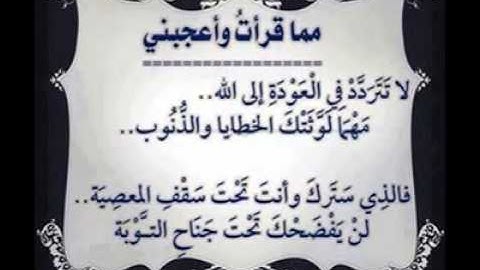 مما قرأتُ وأعجبني
==================
لا تَتَرَدَّدْ فِي الْعَوْدَةِ إلى الله..
مَهْمَا لَوَّثَتْكَ الخطايا والذُّنُوب..
فالذِي سَتَرَكَ وأنتَ تَحْتَ سَقْفِ المعصِيَة..
لنْ يَفْضَحْكَ تَحْتَ جَنَاحِ التَّوْبَة